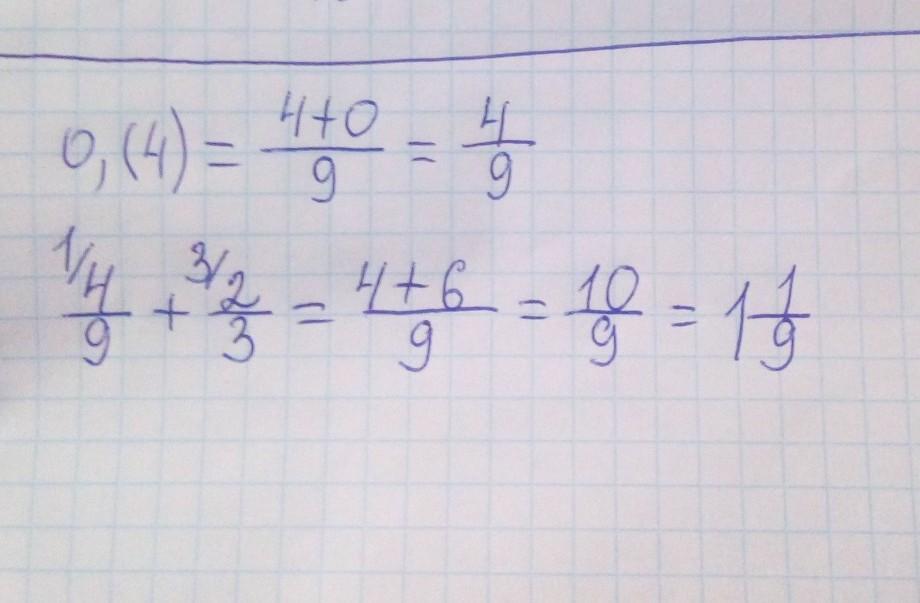 0,(4) = 4+0/9 = 4/9
1/ 4/9 + 3/ 2/3 = 4+6/9 = 10/9 = 1 1/9